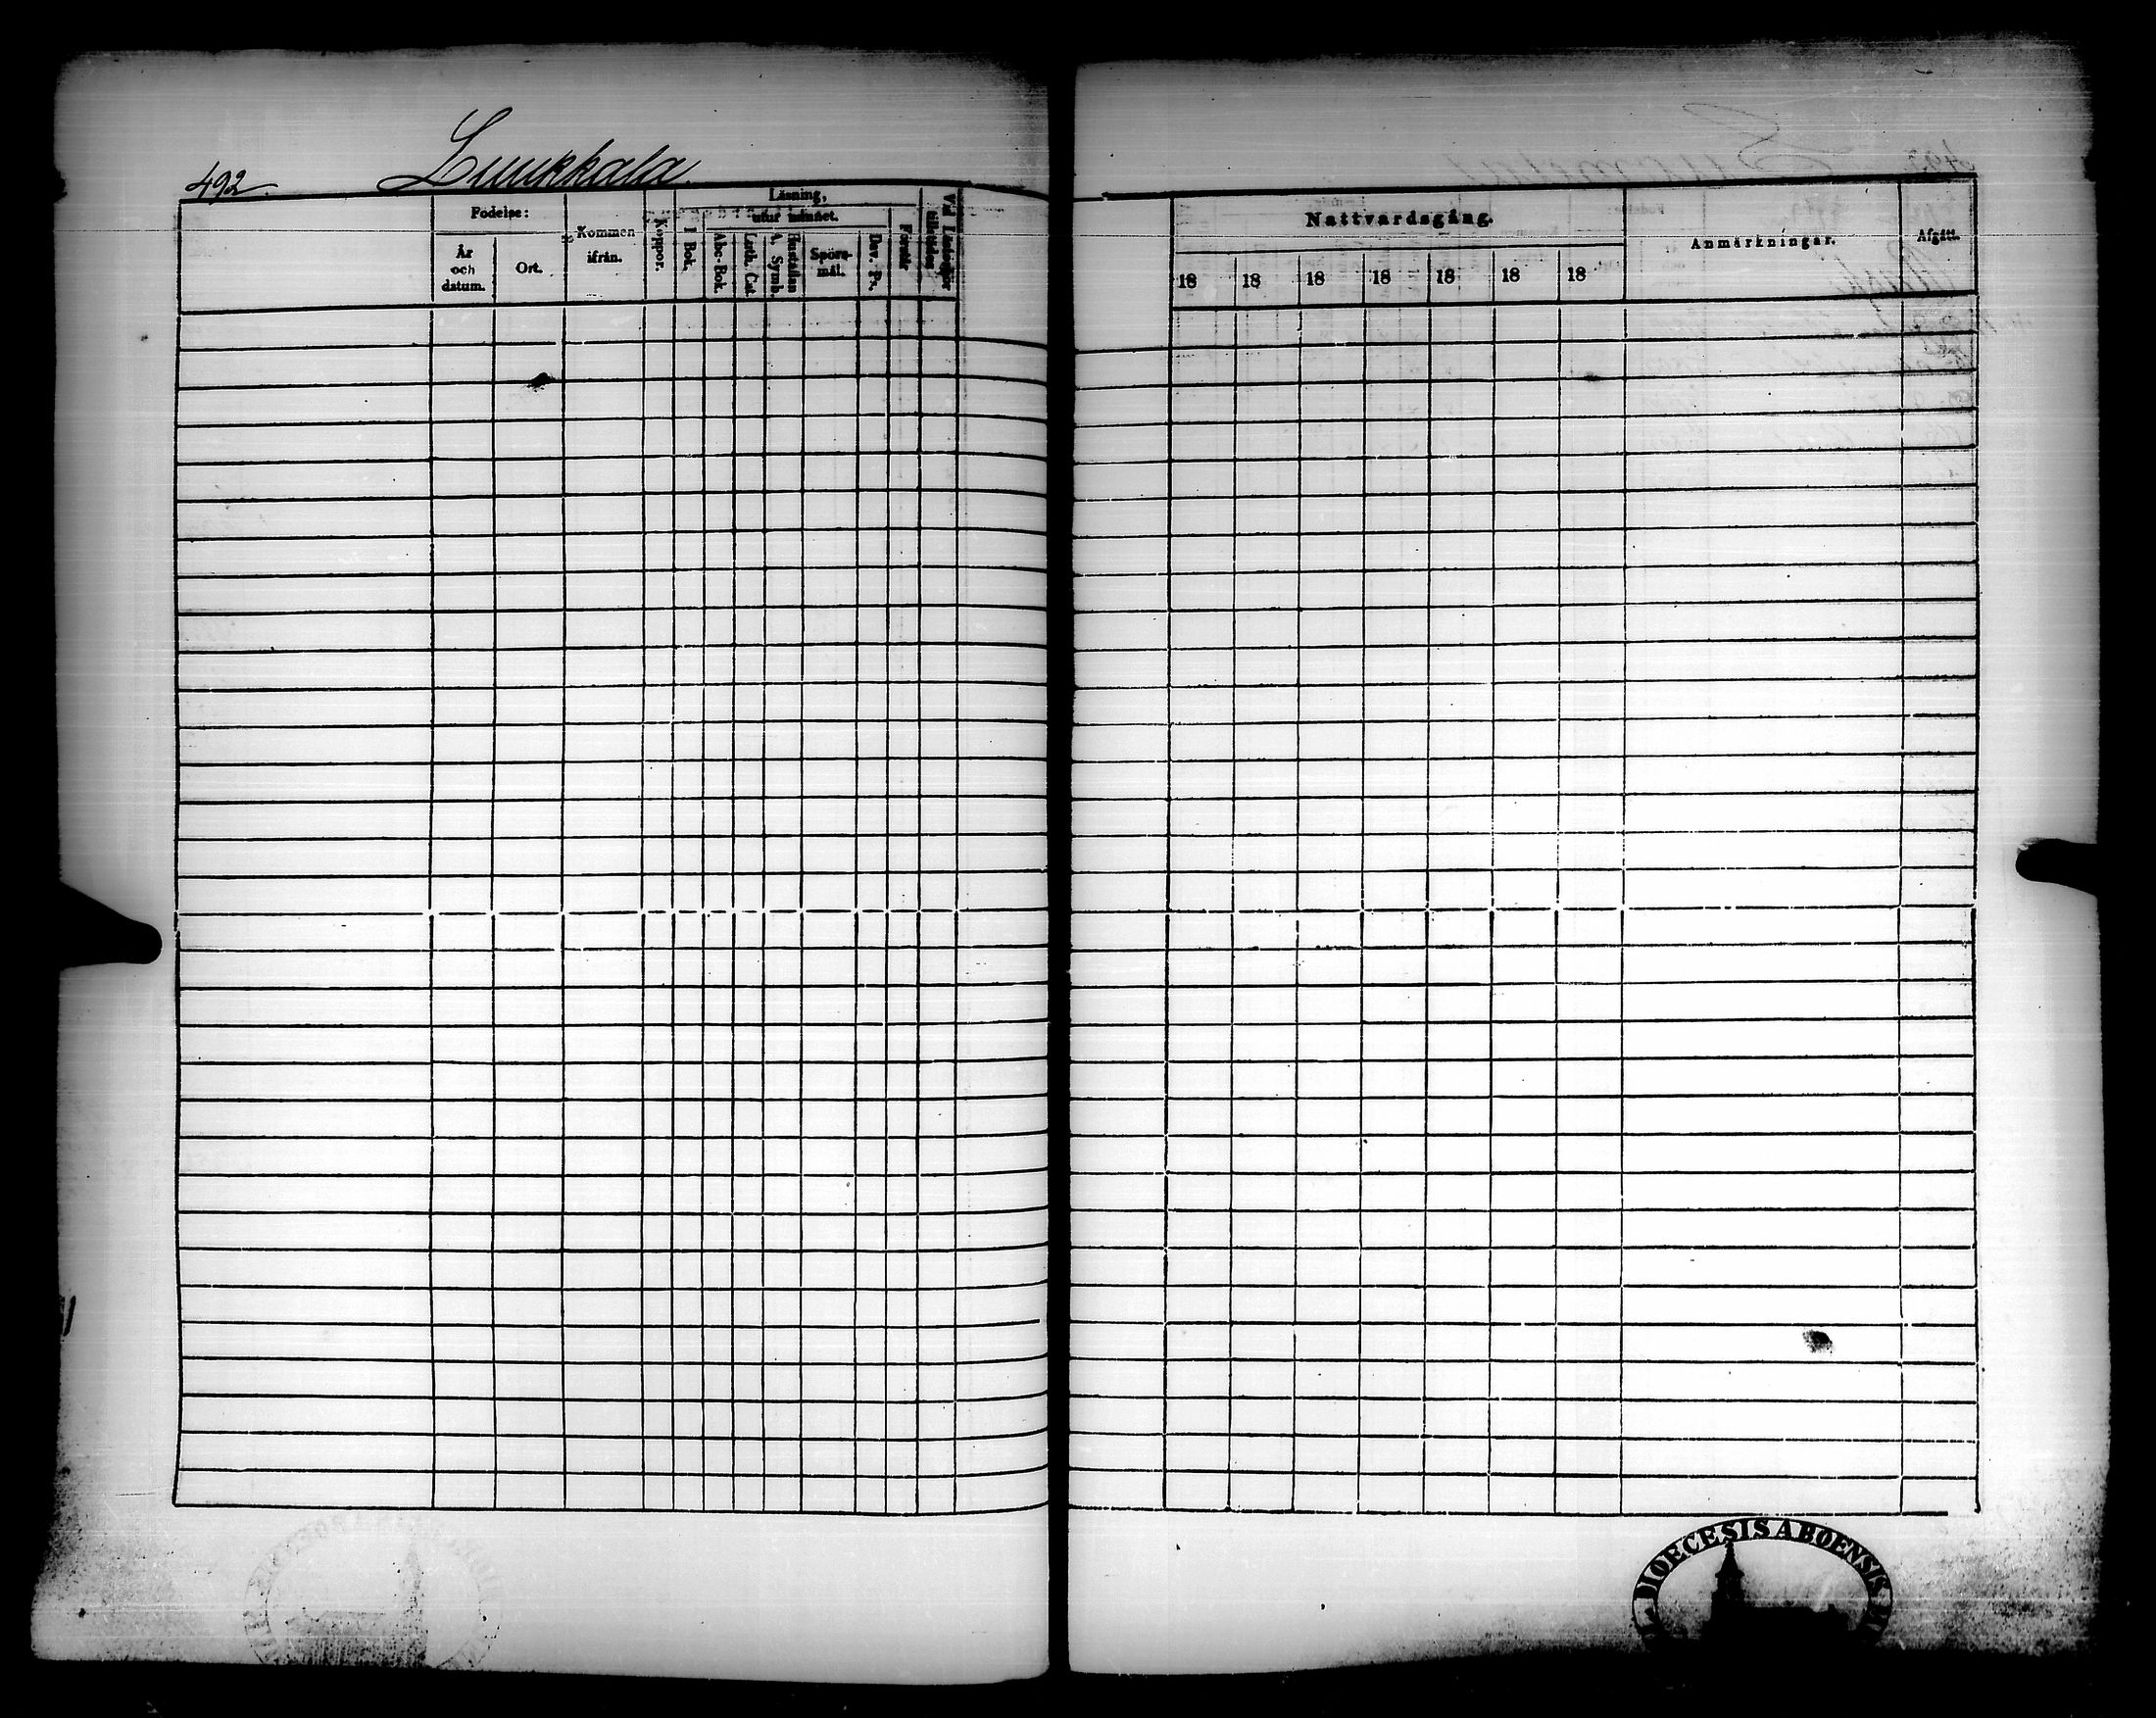 492.
Luukkala.
Födelse:
År
och
datum.
Ort.
Kommen
ifrån.
Koppor.
Läsning,
utur minnet.
I Bok.
Abc-Bok.
Luth. Cat.
Hustaflan
A. Symb.
Spörs-
mål.
Dav. Ps.
Förstår
Vid Läseförhör
Nattvardsgång.
18 18 18 18 18 18 18
Anmärkningar.
Afgått.
DIOECESIS ABOENSIS